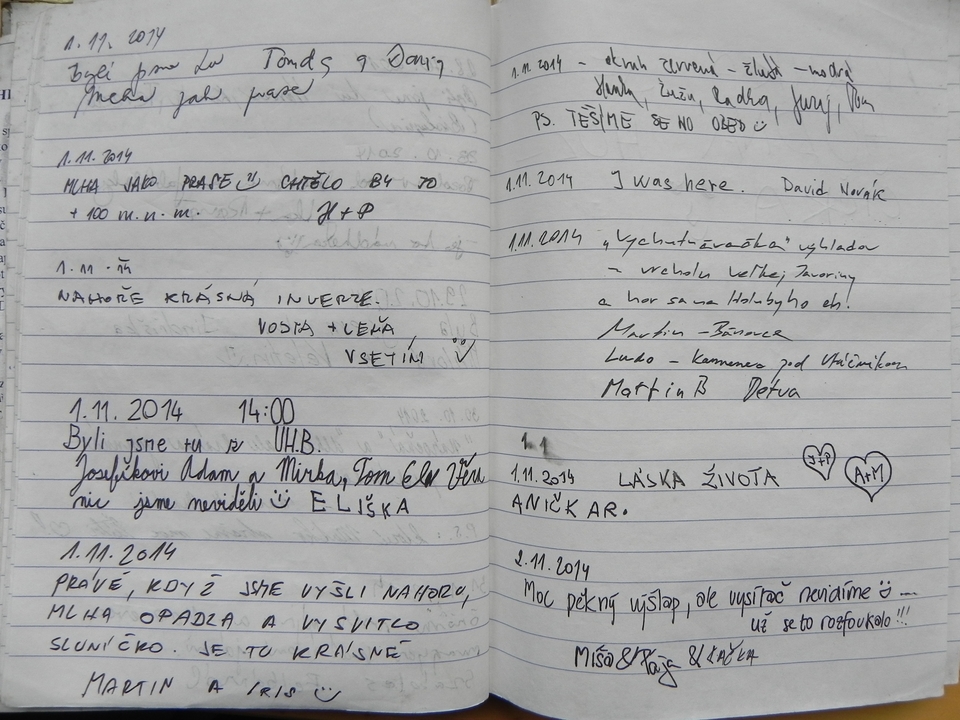 1.11.2014
Byli jsme tu Tomáš a
Mlha jak prase
1.11.2014
MLHA JAKO PRASE CHTĚLO BY TO
+ 100 m.n.m. H+P
1.11.14
NAHOŘE KRÁSNÁ INVERZE.
VOJTA + LEŇA
VSETÍN
1.11.2014 14:00
Byli jsme tu z UH.B.
Josefíkovi Adam a Mirka, Tom Ela Věra
nic jsme neviděli ELIŠKA
1.11.2014
PRÁVĚ, KDYŽ JSME VYŠLI NAHORU,
MLHA OPADLA A VYSVITLO
SLUNÍČKO. JE TO KRÁSNÉ
MARTIN A IRIS
1.11.2014 - okruh červená - žlutá - modrá
Hanka, Zuzu, Radka, Juraj, Tom
PS. TĚŠÍME SE NO OBED
1.11.2014 I was here. David Novák
1.11.2014 "Vychutnávačka" výhladov
z vrcholu Veľkej Javoriny
a hor sa na Holubyho ch.
Martin - Bánovce
Ludo - Kamenec pod Vtáčnikom
Martin B Detva
1.1
1.11.2014 LÁSKA ŽIVOTA J+P A+M
ANIČKA R.
2.11.2014
Moc pěkný výšlap, ale vysílač nevidíme
už se to rozfoukalo!!!
Míša & Pája & KAČKA